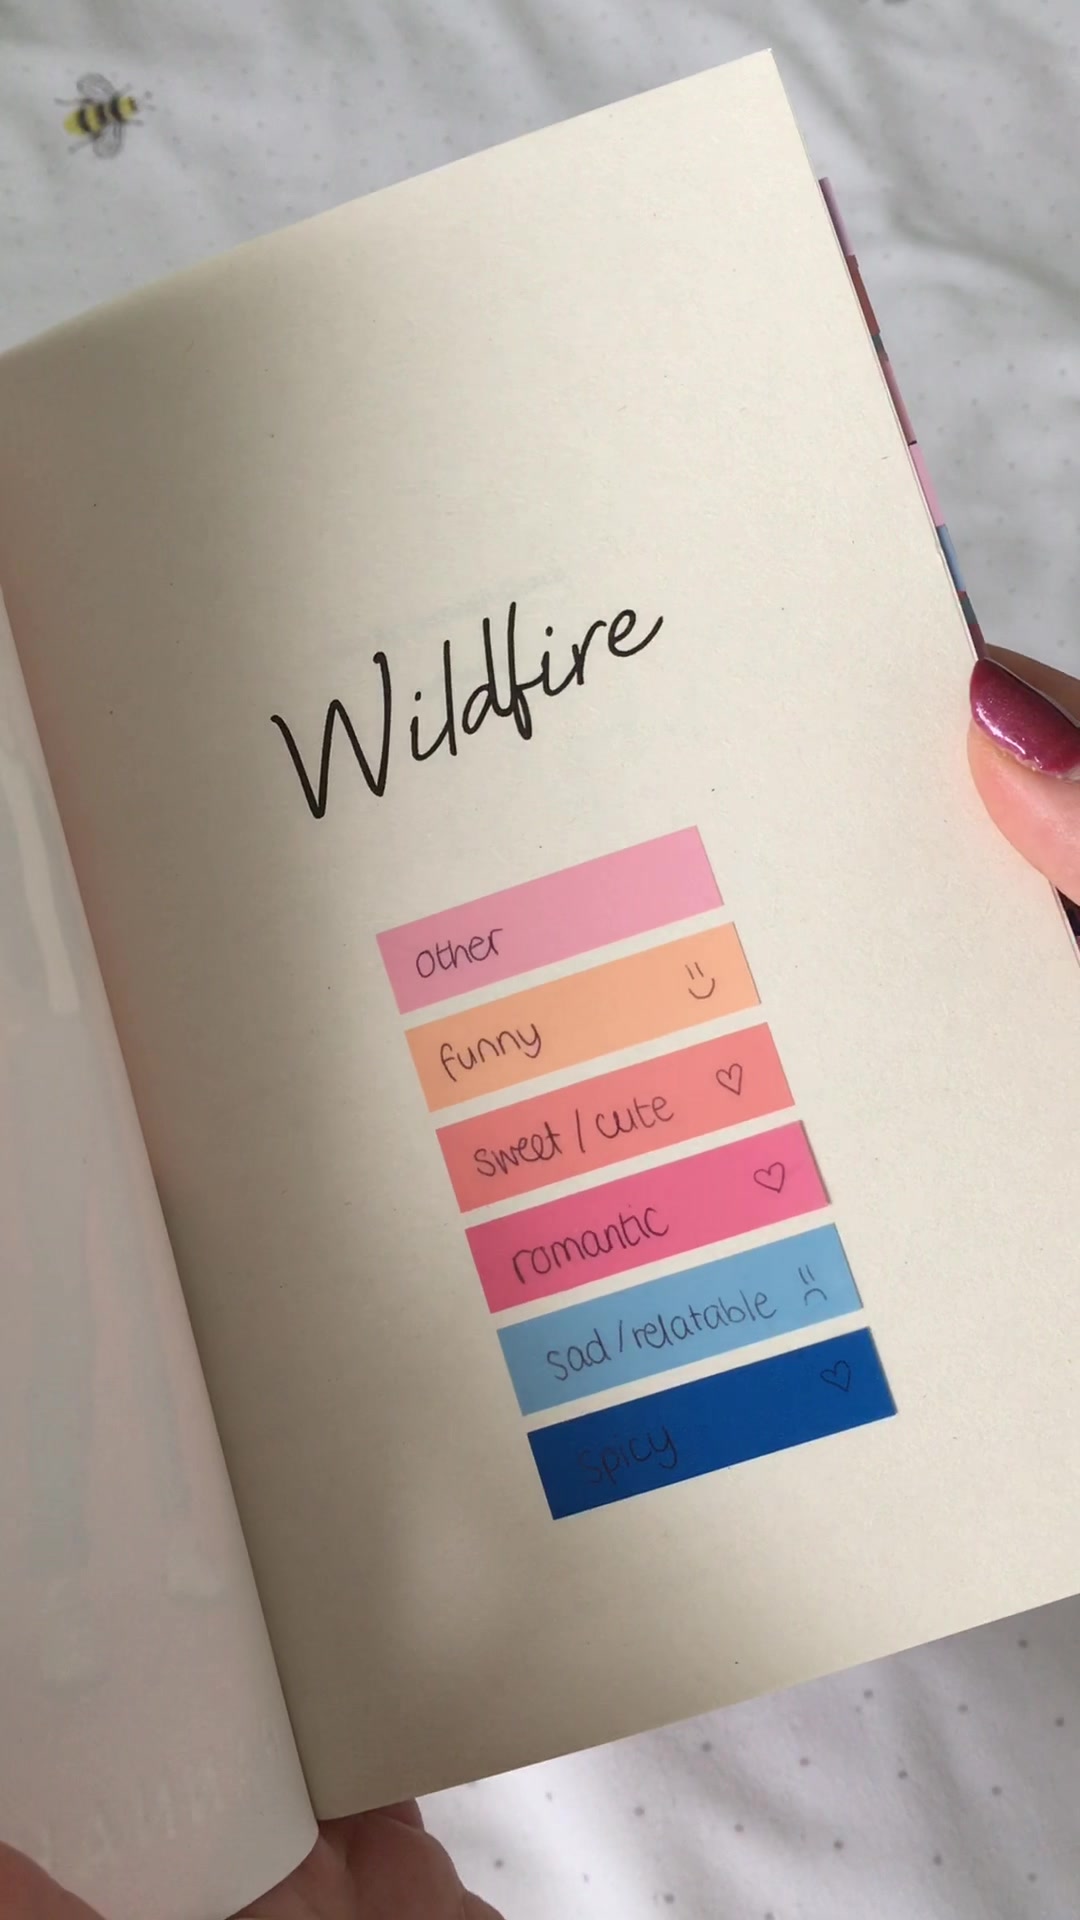 Wildfire
other
funny
sweet / cute
romantic
sad / relatable
spicy